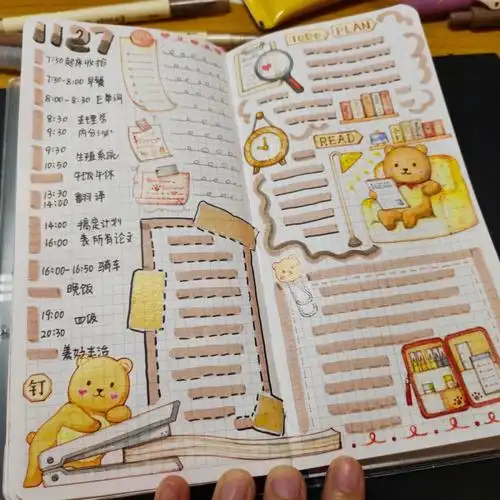 1127
7:30 起床收拾
7:30-8:00 早餐
8:00-8:30 上单词
8:30
9:30
生理学
内分泌
9:30
10:50
生殖系统
午饭午休
13:30
14:00
翻译
14:00
16:00
搞定计划
表所有论文
16:00-16:50 骑车
晚饭
19:00
20:30
四级
美好生活
钉
TODO PLAN
READ